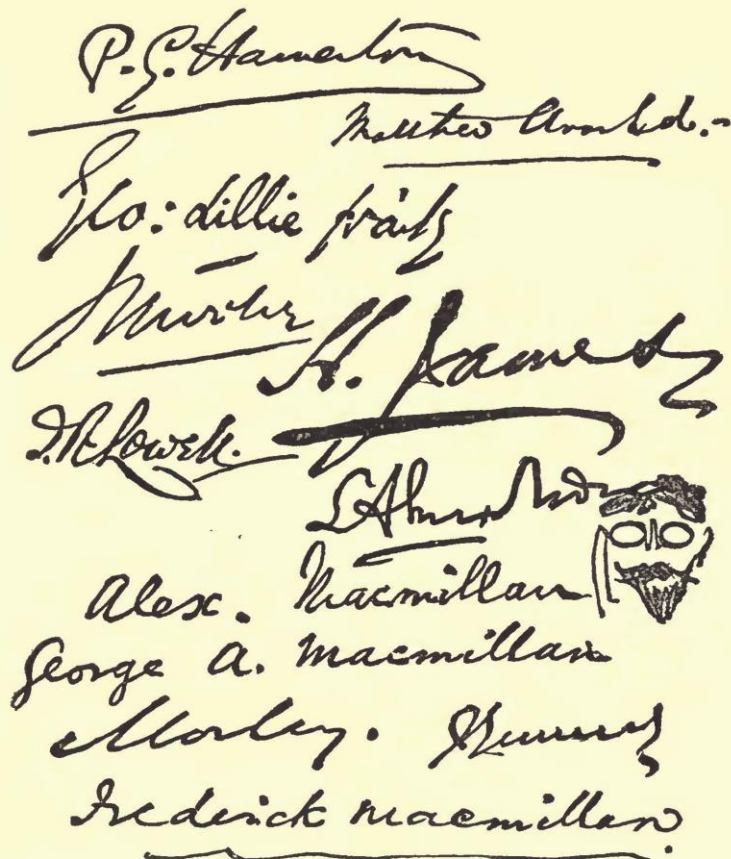 P. G. Hamerton
Matthew Arnold.
Geo: Lillie Craik
H. James
J. R. Lowell.
L Alma
Alex. Macmillan
George A. Macmillan
J Morley.
Frederick Macmillan